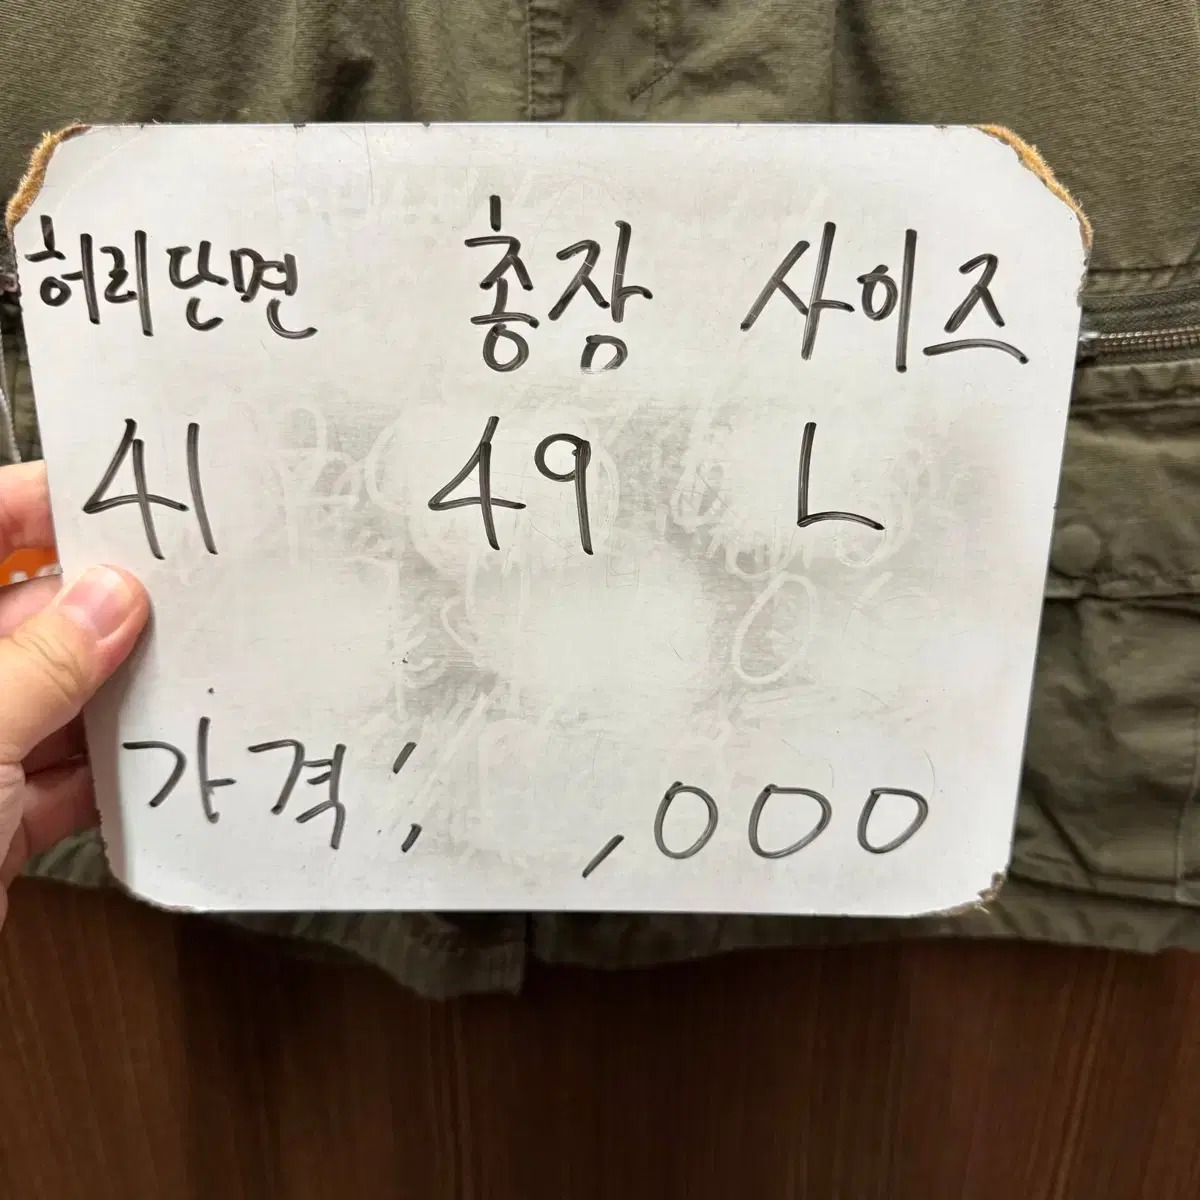 허리단면 총장 사이즈
41 49 L
가격: ,000